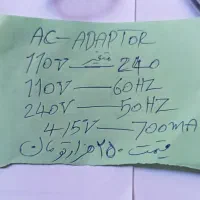 AC-ADAPTOR
110V — 240
110V — 60HZ
240V — 50HZ
4-15V — 700MA
قیمت ۲۵۰ هزار تو